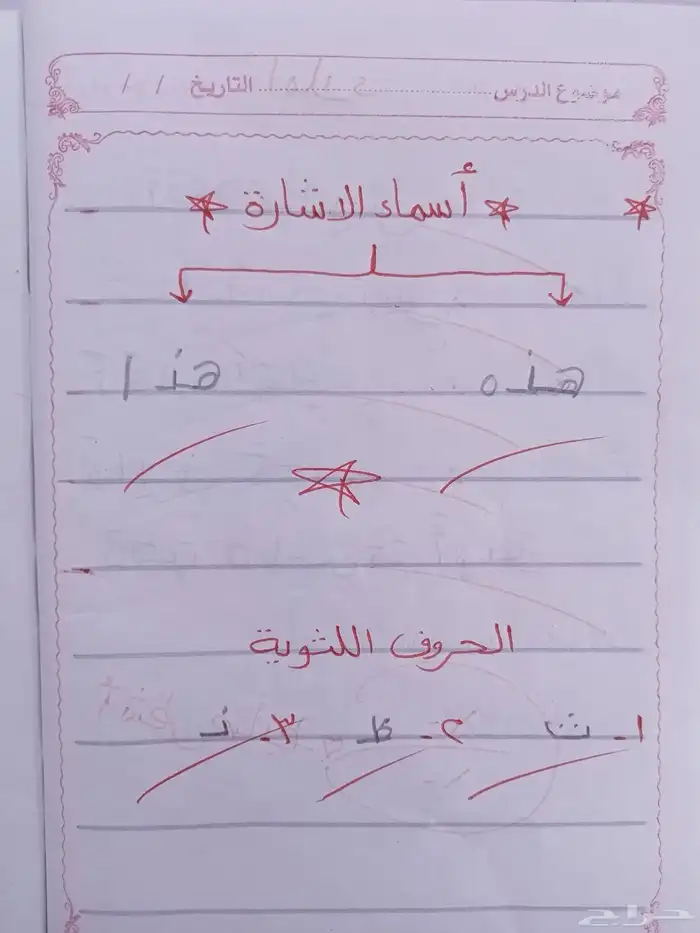 موضوع الدرس .................... التاريخ / /
أسماء الاشارة
هذه هذا
الحروف اللثوية
١- ث ٢- ظ ٣- ذ
حراج